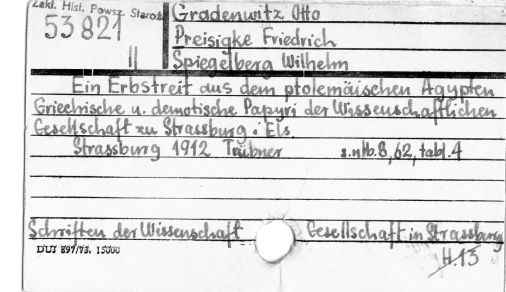 Zakl. Hist. Powsz. Staroż
53821
II
Gradenwitz Otto
Preisigke Friedrich
Spiegelberg Wilhelm
Ein Erbstreit aus dem ptolemäischen Ägypten
Griechische u. demotische Papyri der Wissenschaftlichen
Gesellschaft zu Strassburg i Els.
Strassburg 1912 Trübner s. nlb. 8, 62, tabl. 4
Schriften der Wissenschaft Gesellschaft in Strassburg
H. 13
DUJ 897/73. 15000